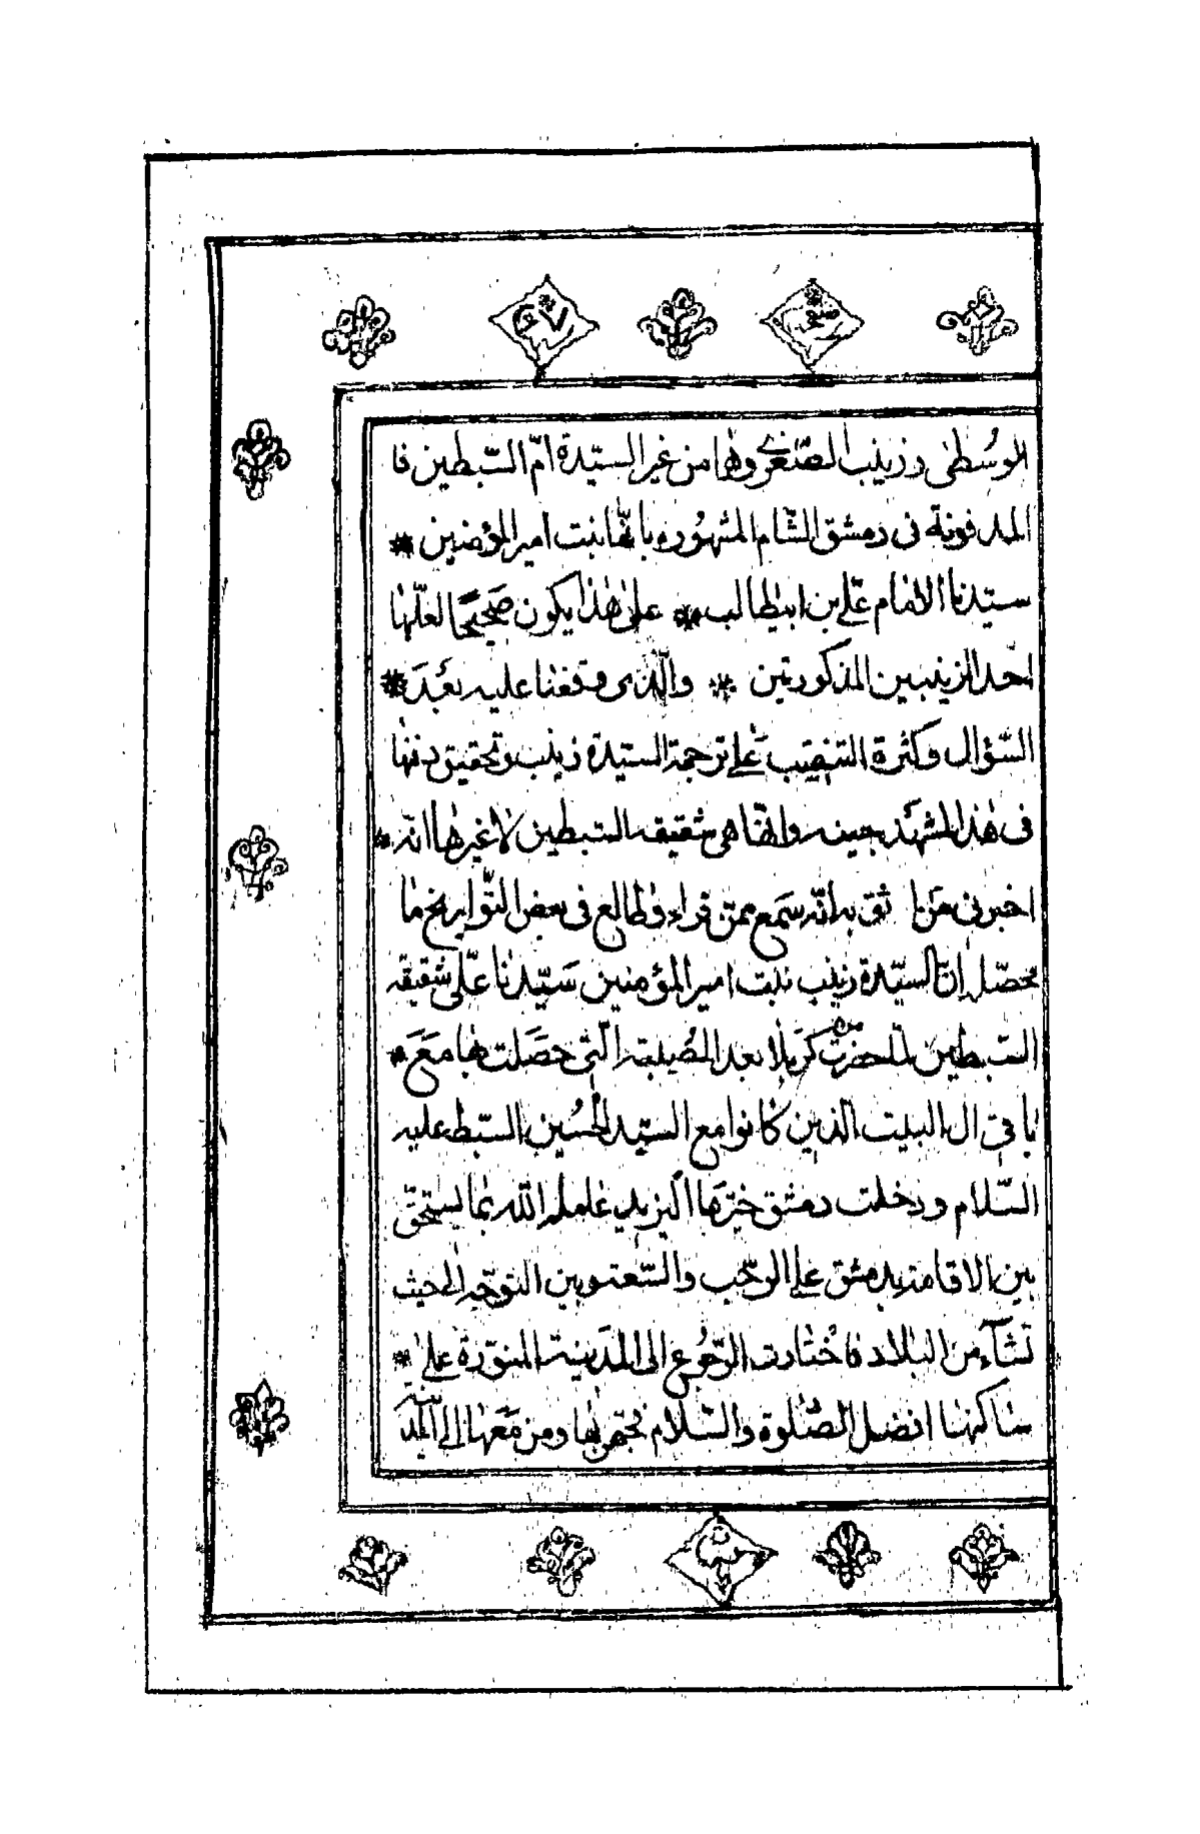 الوُسطىٰ وزينب الصّغرىٰ وهٰما من غير السيّدة امّ السّبطين فا
المدفونة فى دمشق الشّام المشهُوره بانّها بنت امير المؤمنين *
سيّدنا الامام علىّ بن ابيطالب * علىٰ هٰذا يكون صَحيحًا لعلّها
احَد الزينبين المذكورتين * والّذى وقفنا عليه بَعْدَ *
السّؤال وكثرة التنقيب علىٰ ترجمة السيّدة زينب وتحقيق دفنها
فى هٰذا المشهَد بعينه وانّها هى شقيقه السّبطين لا غيرها انّه *
اخبرنى مَن اثق به انّه سَمع ممّن قراء وطالع فى بعض التّواريخ مٰا
محصّله انّ السيّدة زينب بنت امير المؤمنين سَيّدنا علىّ شقيقه
السّبطين لمّا حضرت من كربلا بعد المصيبه الّتى حصَلت لها مَعَ *
باقى ال البيت الّذين كانوا مع السيّد الحُسين السّبط عليه
السّلام ودخلت دمشق خيّرها اليزيد عٰامله اللّٰه بما يستحقّ
بين الاقامة بدمشق على الرّحب والسّعة وبين التوجّه الىٰ حيث
تشآء من البلاد فاختٰارت الرّجُوع الى المَدينة المنوّرة علىٰ *
سٰاكنهٰا افضل الصّلوٰة والسّلام فجهّز بها ومن مَعَهٰا الى المدينة